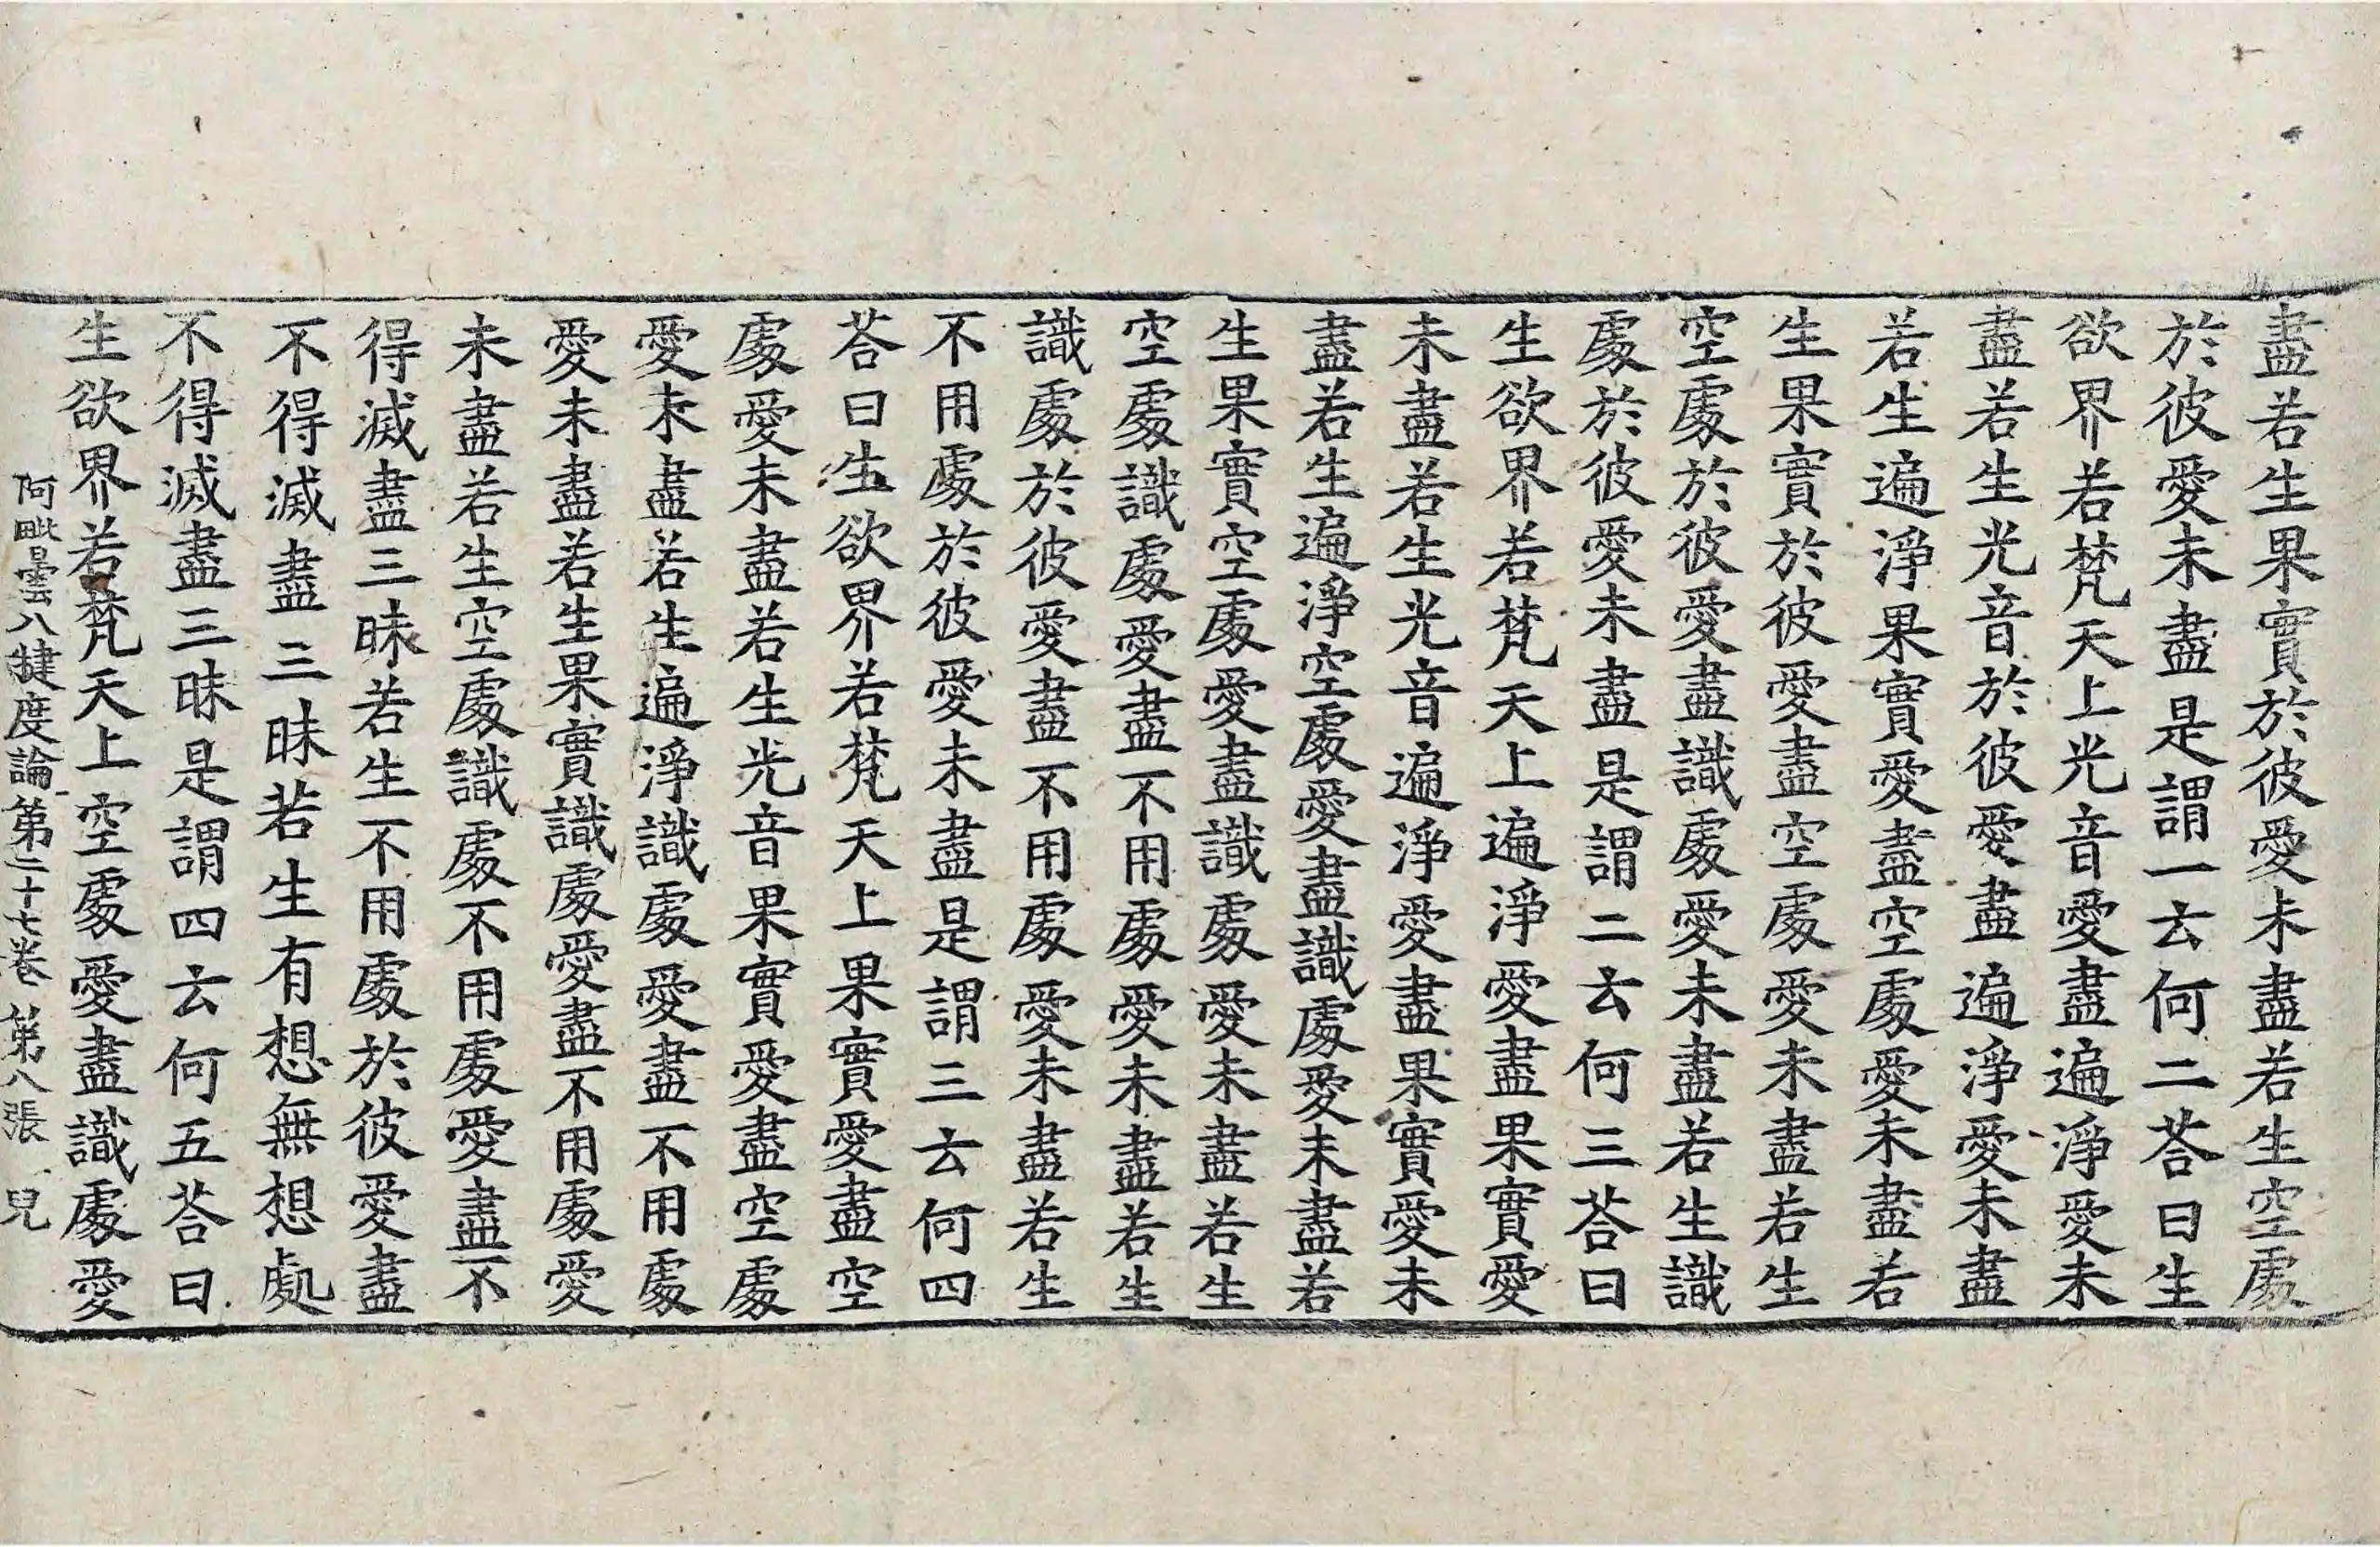 盡若生果實於彼愛未盡若生空處
於彼愛未盡是謂一云何二荅曰生
欲界若梵天上光音愛盡遍淨愛未
盡若生光音於彼愛盡遍淨愛未盡
若生遍淨果實愛盡空處愛未盡若
生果實於彼愛盡空處愛未盡若生
空處於彼愛盡識處愛未盡若生識
處於彼愛未盡是謂二云何三荅曰
生欲界若梵天上遍淨愛盡果實愛
未盡若生光音遍淨愛盡果實愛未
盡若生遍淨空處愛盡識處愛未盡若
生果實空處愛盡識處愛未盡若生
空處識處愛盡不用處愛未盡若生
識處於彼愛盡不用處愛未盡若生
不用處於彼愛未盡是謂三云何四
荅曰生欲界若梵天上果實愛盡空
處愛未盡若生光音果實愛盡空處
愛未盡若生遍淨識處愛盡不用處
愛未盡若生果實識處愛盡不用處愛
未盡若生空處識處不用處愛盡不
得滅盡三昧若生不用處於彼愛盡
不得滅盡三昧若生有想無想處
不得滅盡三昧是謂四云何五荅曰
生欲界若梵天上空處愛盡識處愛
阿毗曇八犍度論第二十七卷 第八張 兒